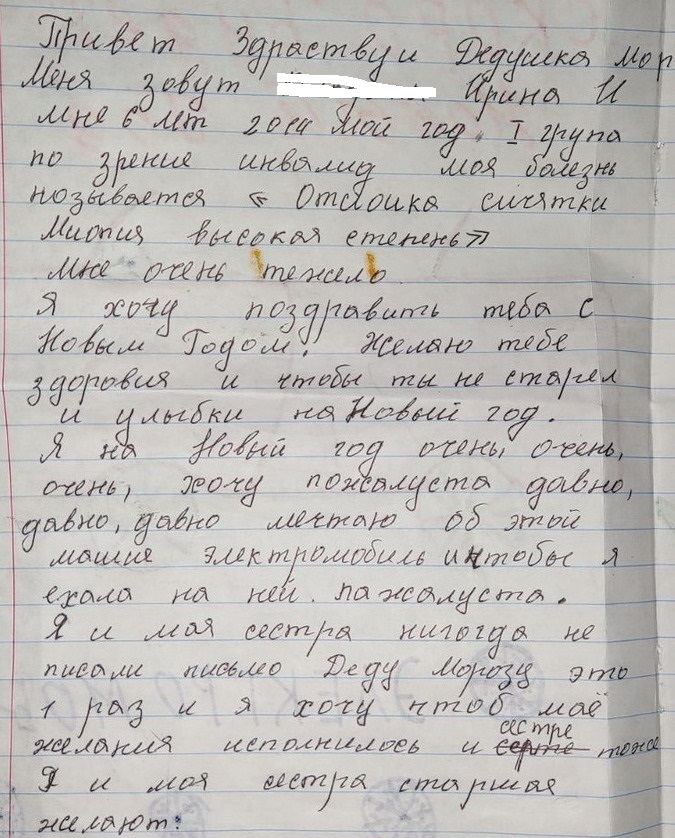 Привет Здраствуй Дедушка мор
Меня зовут Ирина И
мне 6 лет 2014 мой год. I група
по зрение инвалид моя болезнь
нозывается « Отслоика сичятки
Миопия высокая степень»
мне очень тежело
Я хочу поздравить теба с
Новым Годом. Желаю тебе
здоровия и чтобы ты не старел
и улыбки на Новый год.
Я на Новый год очень, очень,
очень, хочу пожалуста давно,
давно, давно мечтаю об этой
машие электромобиль и чтобы я
ехала на ней. пажалуста.
Я и моя сестра нигогда не
писали письмо Деду Морозу это
1 раз и я хочу чтоб маё
желания исполнилось и сестре тоже
Я и моя сестра старшая
желают: